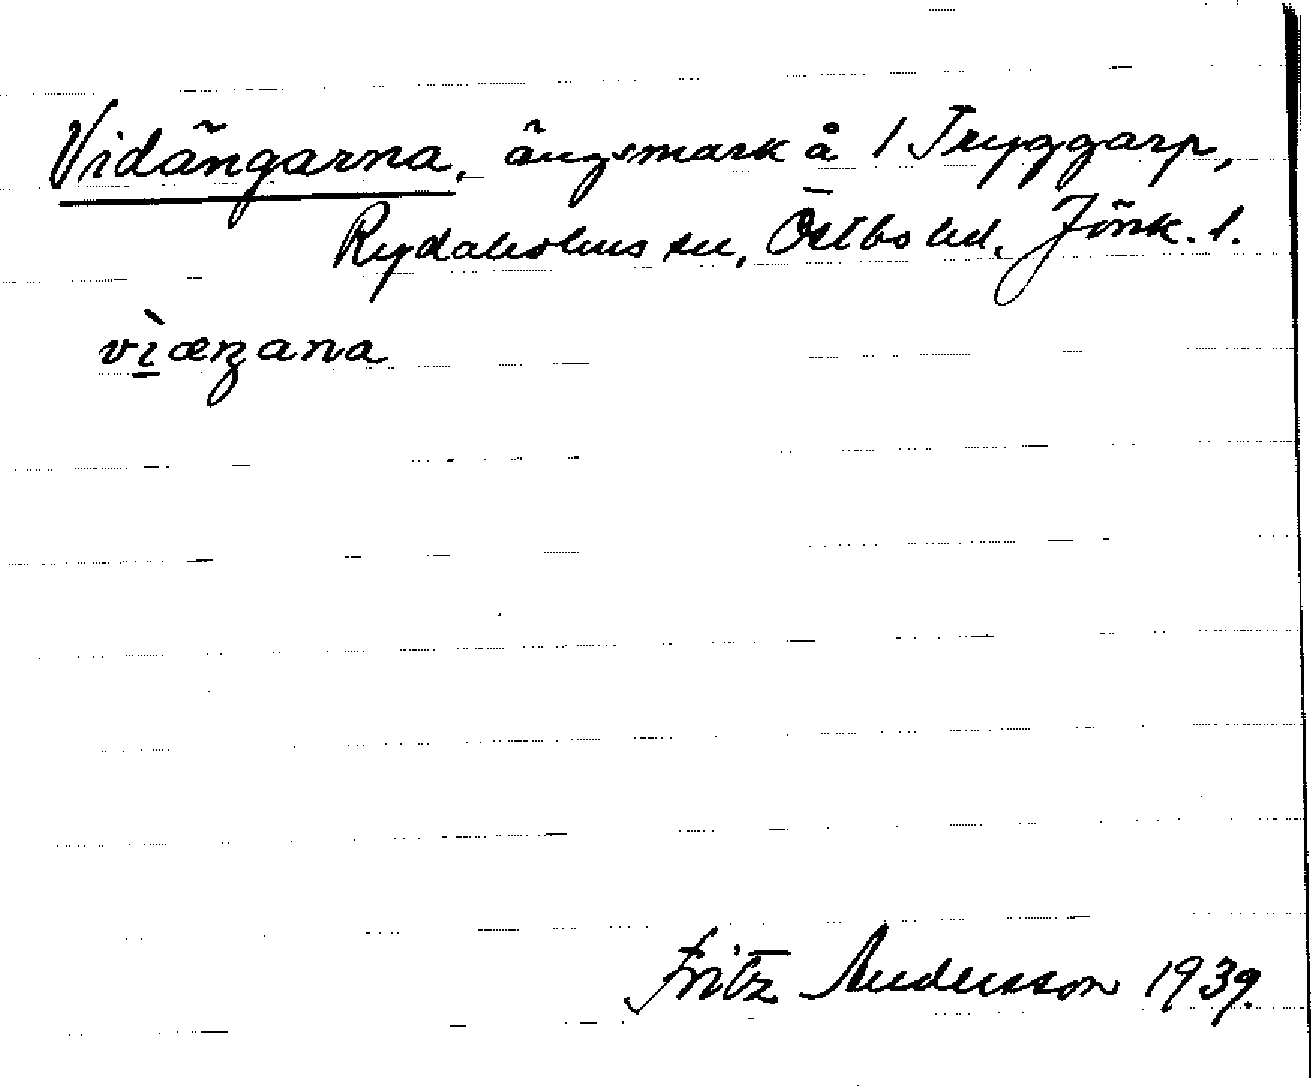 Vidängarna, ängsmark å 1 Tryggarp,
Rydaholms sn, Östbo hd, Jönk. l.
vìæŋana
Fritz Andersson 1939.